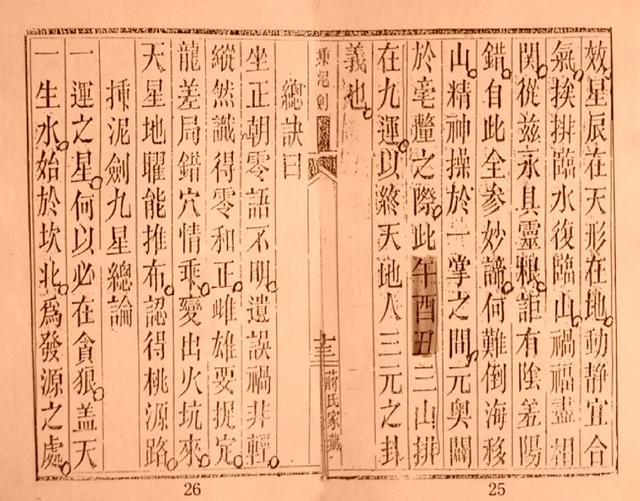 效。星辰在天形在地。動靜宜合
氣。挨排臨水復臨山。禍福盡相
関。從兹永具靈粮。詎有陰差陽
錯。自此全参妙諦。何難倒海移
山。精神操於一掌之間。元奥闢
於毫釐之際。此午酉丑三山排
在九運。以終天地人三元之卦
義也。
捶泥劍
十三
蔣氏家藏
總訣曰
坐正朝零語不明。遺誤禍非輕。
縱然識得零和正。雌雄要捉定。
龍差局錯穴情乖。變出火坑來。
天星地曜能推布。認得桃源路。
捶泥劍九星總論
一運之星。何以必在貪狼。盖天
一生水。始於坎北。爲發源之處。
26
25